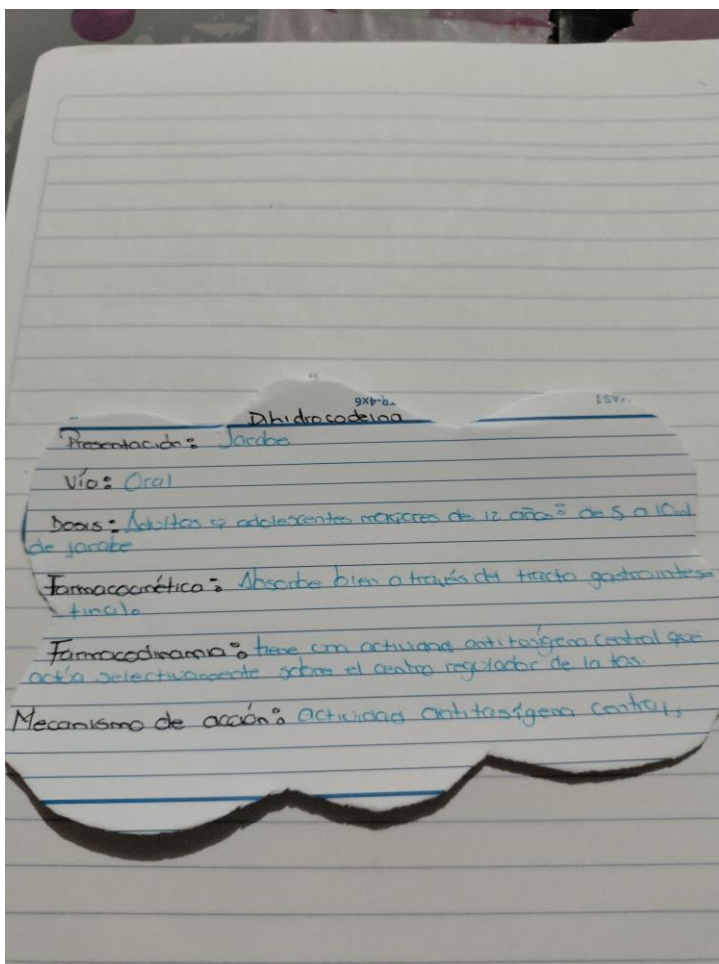 Dihidrocodeina
Presentación: Jarabe
Vía: Oral
Dosis: Adultos y adolescentes mayores de 12 años: de 5 a 10ml
de jarabe
Farmacocinética: Absorbe bien a través del tracto gastrointes-
tinal.
Farmacodinamia: tiene una actividad antitusígena central que
actúa selectivamente sobre el centro regulador de la tos.
Mecanismo de acción: actividad antitusígena central.